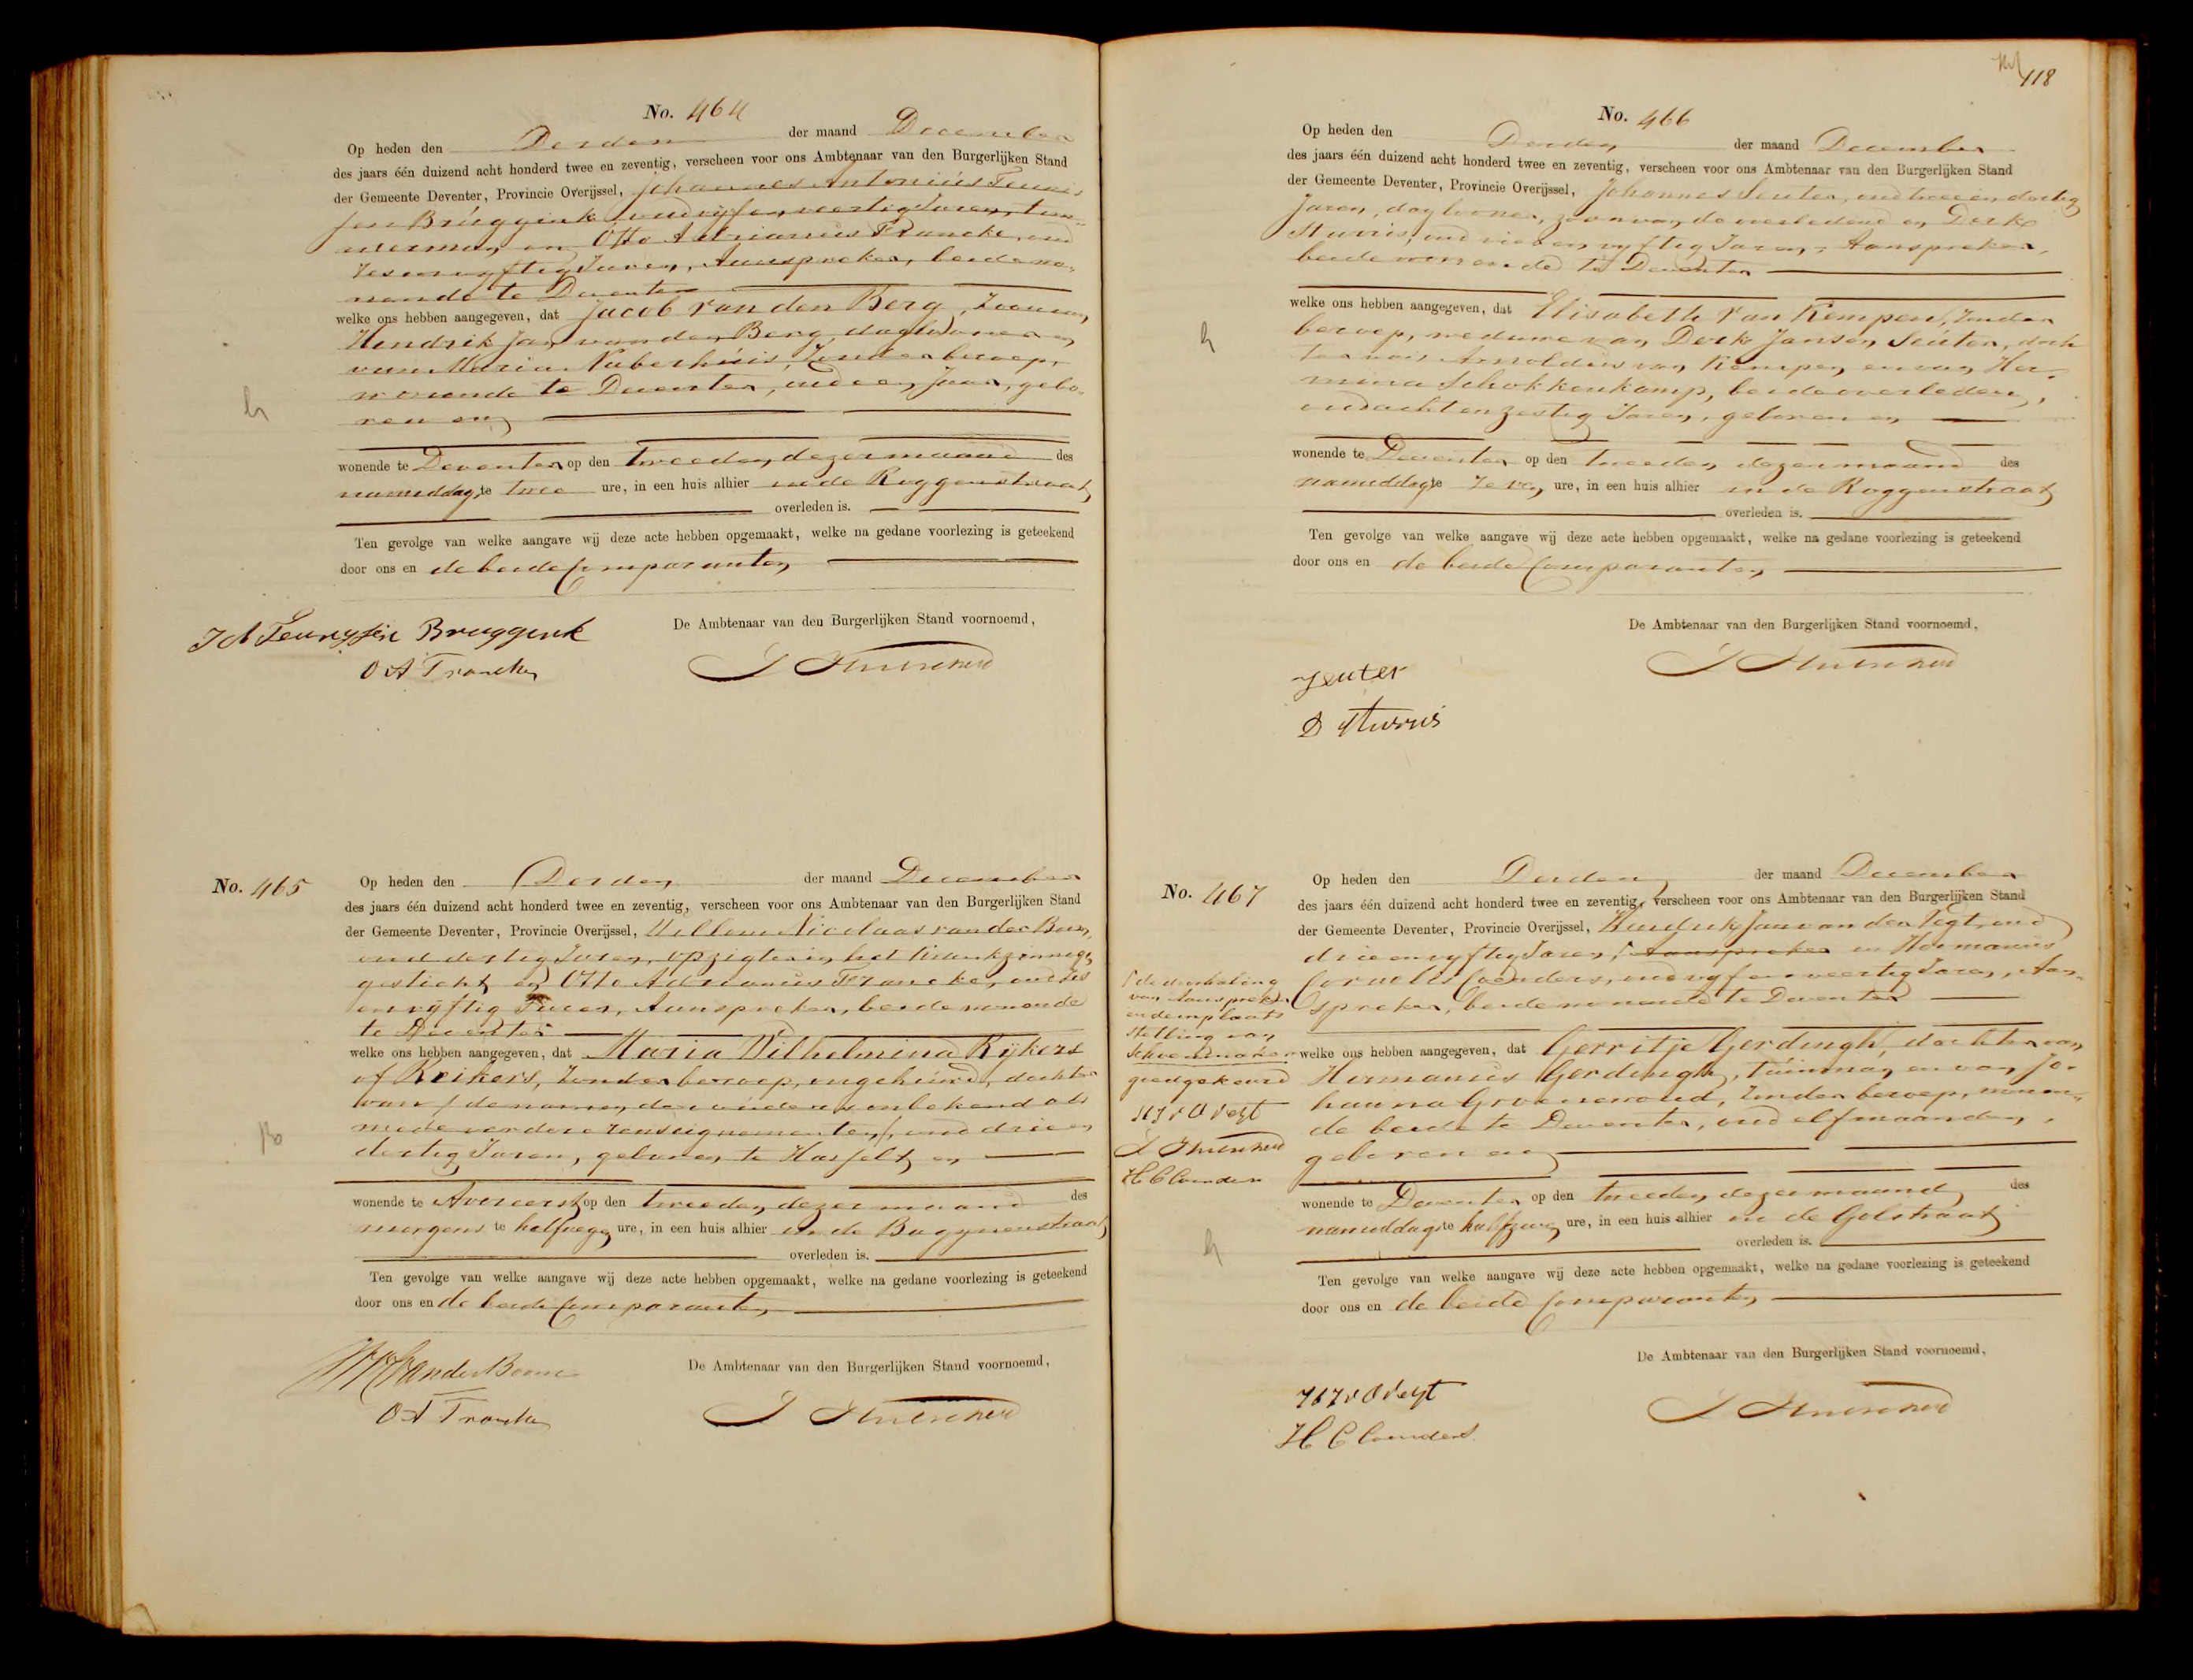 No. 464
Op heden den Derden der maand December
des jaars één duizend acht honderd twee en zeventig, verscheen voor ons Ambtenaar van den Burgerlijken Stand
der Gemeente Deventer, Provincie Overijssel, Johannes Antonius Teunis
sen Bruggink oud vijf en veertig Jaren, tim-
merman en Otto Adrianus Francke, oud
zes en vyftig Jaren, Aanspreker, beide wo-
nende te Deventer
welke ons hebben aangegeven, dat Jacob van den Berg, Zoon van
Hendrik Jan van den Berg, daglooner en
van Maria Naberhuis, Zonder beroep,
wonende te Deventer, oud een Jaar, gebo-
ren en
wonende te Deventer op den tweeden dezer maand des
namiddags te twee ure, in een huis alhier in de Roggenstraat
overleden is.
Ten gevolge van welke aangave wij deze acte hebben opgemaakt, welke na gedane voorlezing is geteekend
door ons en de beide Comparanten
De Ambtenaar van den Burgerlijken Stand voornoemd,
J A Teunyssen Bruggink
O A Francke
No. 465
Op heden den Derden der maand December
des jaars één duizend acht honderd twee en zeventig, verscheen voor ons Ambtenaar van den Burgerlijken Stand
der Gemeente Deventer, Provincie Overijssel, Willem Nicolaas van der Bom,
oud dertig Jaren, opzigter in het Krankzinnigen
gesticht en Otto Adrianus Francke, oud zes
en vyftig Jaren, Aanspreker, beide wonende
te Deventer
welke ons hebben aangegeven, dat Maria Wilhelmina Rijkers
of Reikers, Zonder beroep, ongehuwd, dochter
van (de namen der ouders onbekend als
mede verdere renseignementen), oud drie en
dertig Jaren, geboren te Hasselt en
wonende te Avereerst op den tweeden dezer maand des
morgens te half negen ure, in een huis alhier in de Bagynenstraat
overleden is.
Ten gevolge van welke aangave wij deze acte hebben opgemaakt, welke na gedane voorlezing is geteekend
door ons en de beide Comparanten
De Ambtenaar van den Burgerlijken Stand voornoemd,
O A Francke
118
No. 466
Op heden den Derden der maand December
des jaars één duizend acht honderd twee en zeventig, verscheen voor ons Ambtenaar van den Burgerlijken Stand
der Gemeente Deventer, Provincie Overijssel, Johannes Seuter, oud twee en dertig
Jaren, daglooner, zoon van de overledene en Derk
Sturris, oud zeven en vyftig Jaren, Aanspreker,
beide wonende te Deventer
welke ons hebben aangegeven, dat Elisabeth van Kempen, Zonder
beroep, weduwe van Derk Jansen Seuter, doch
ter van Arnoldus van Kempen en van Her-
mina Schokkenkamp, beide overleden,
oud acht en zestig Jaren, geboren en
wonende te Deventer op den tweeden dezer maand des
namiddags te zeven ure, in een huis alhier in de Roggenstraat
overleden is.
Ten gevolge van welke aangave wij deze acte hebben opgemaakt, welke na gedane voorlezing is geteekend
door ons en de beide Comparanten
De Ambtenaar van den Burgerlijken Stand voornoemd,
Seuter
D Sturris
No. 467
Op heden den Derden der maand December
des jaars één duizend acht honderd twee en zeventig, verscheen voor ons Ambtenaar van den Burgerlijken Stand
der Gemeente Deventer, Provincie Overijssel, Hendrik Jan van der Vegt, oud
drie en vyftig Jaren, Aanspreker en Hermanus
Cornelis Coenders, oud vyf en veertig Jaren, Aan-
spreker, beide wonende te Deventer
welke ons hebben aangegeven, dat Gerritje Gerdingh, dochter van
Hermanus Gerdingh, tuinman en van Jo-
hanna Groenewoud, Zonder beroep, wonen-
de beide te Deventer, oud elf maanden,
geboren en
wonende te Deventer op den tweeden dezer maand des
namiddags te half zeven ure, in een huis alhier in de Golstraat
overleden is.
Ten gevolge van welke aangave wij deze acte hebben opgemaakt, welke na gedane voorlezing is geteekend
door ons en de beide Comparanten
De Ambtenaar van den Burgerlijken Stand voornoemd,
H J v d Vegt
H C Coenders
de doorhaling
van Aanspreker
en de inplaats
stelling van
Schoenmaker
goedgekeurd
H J v d Vegt
H C Coenders